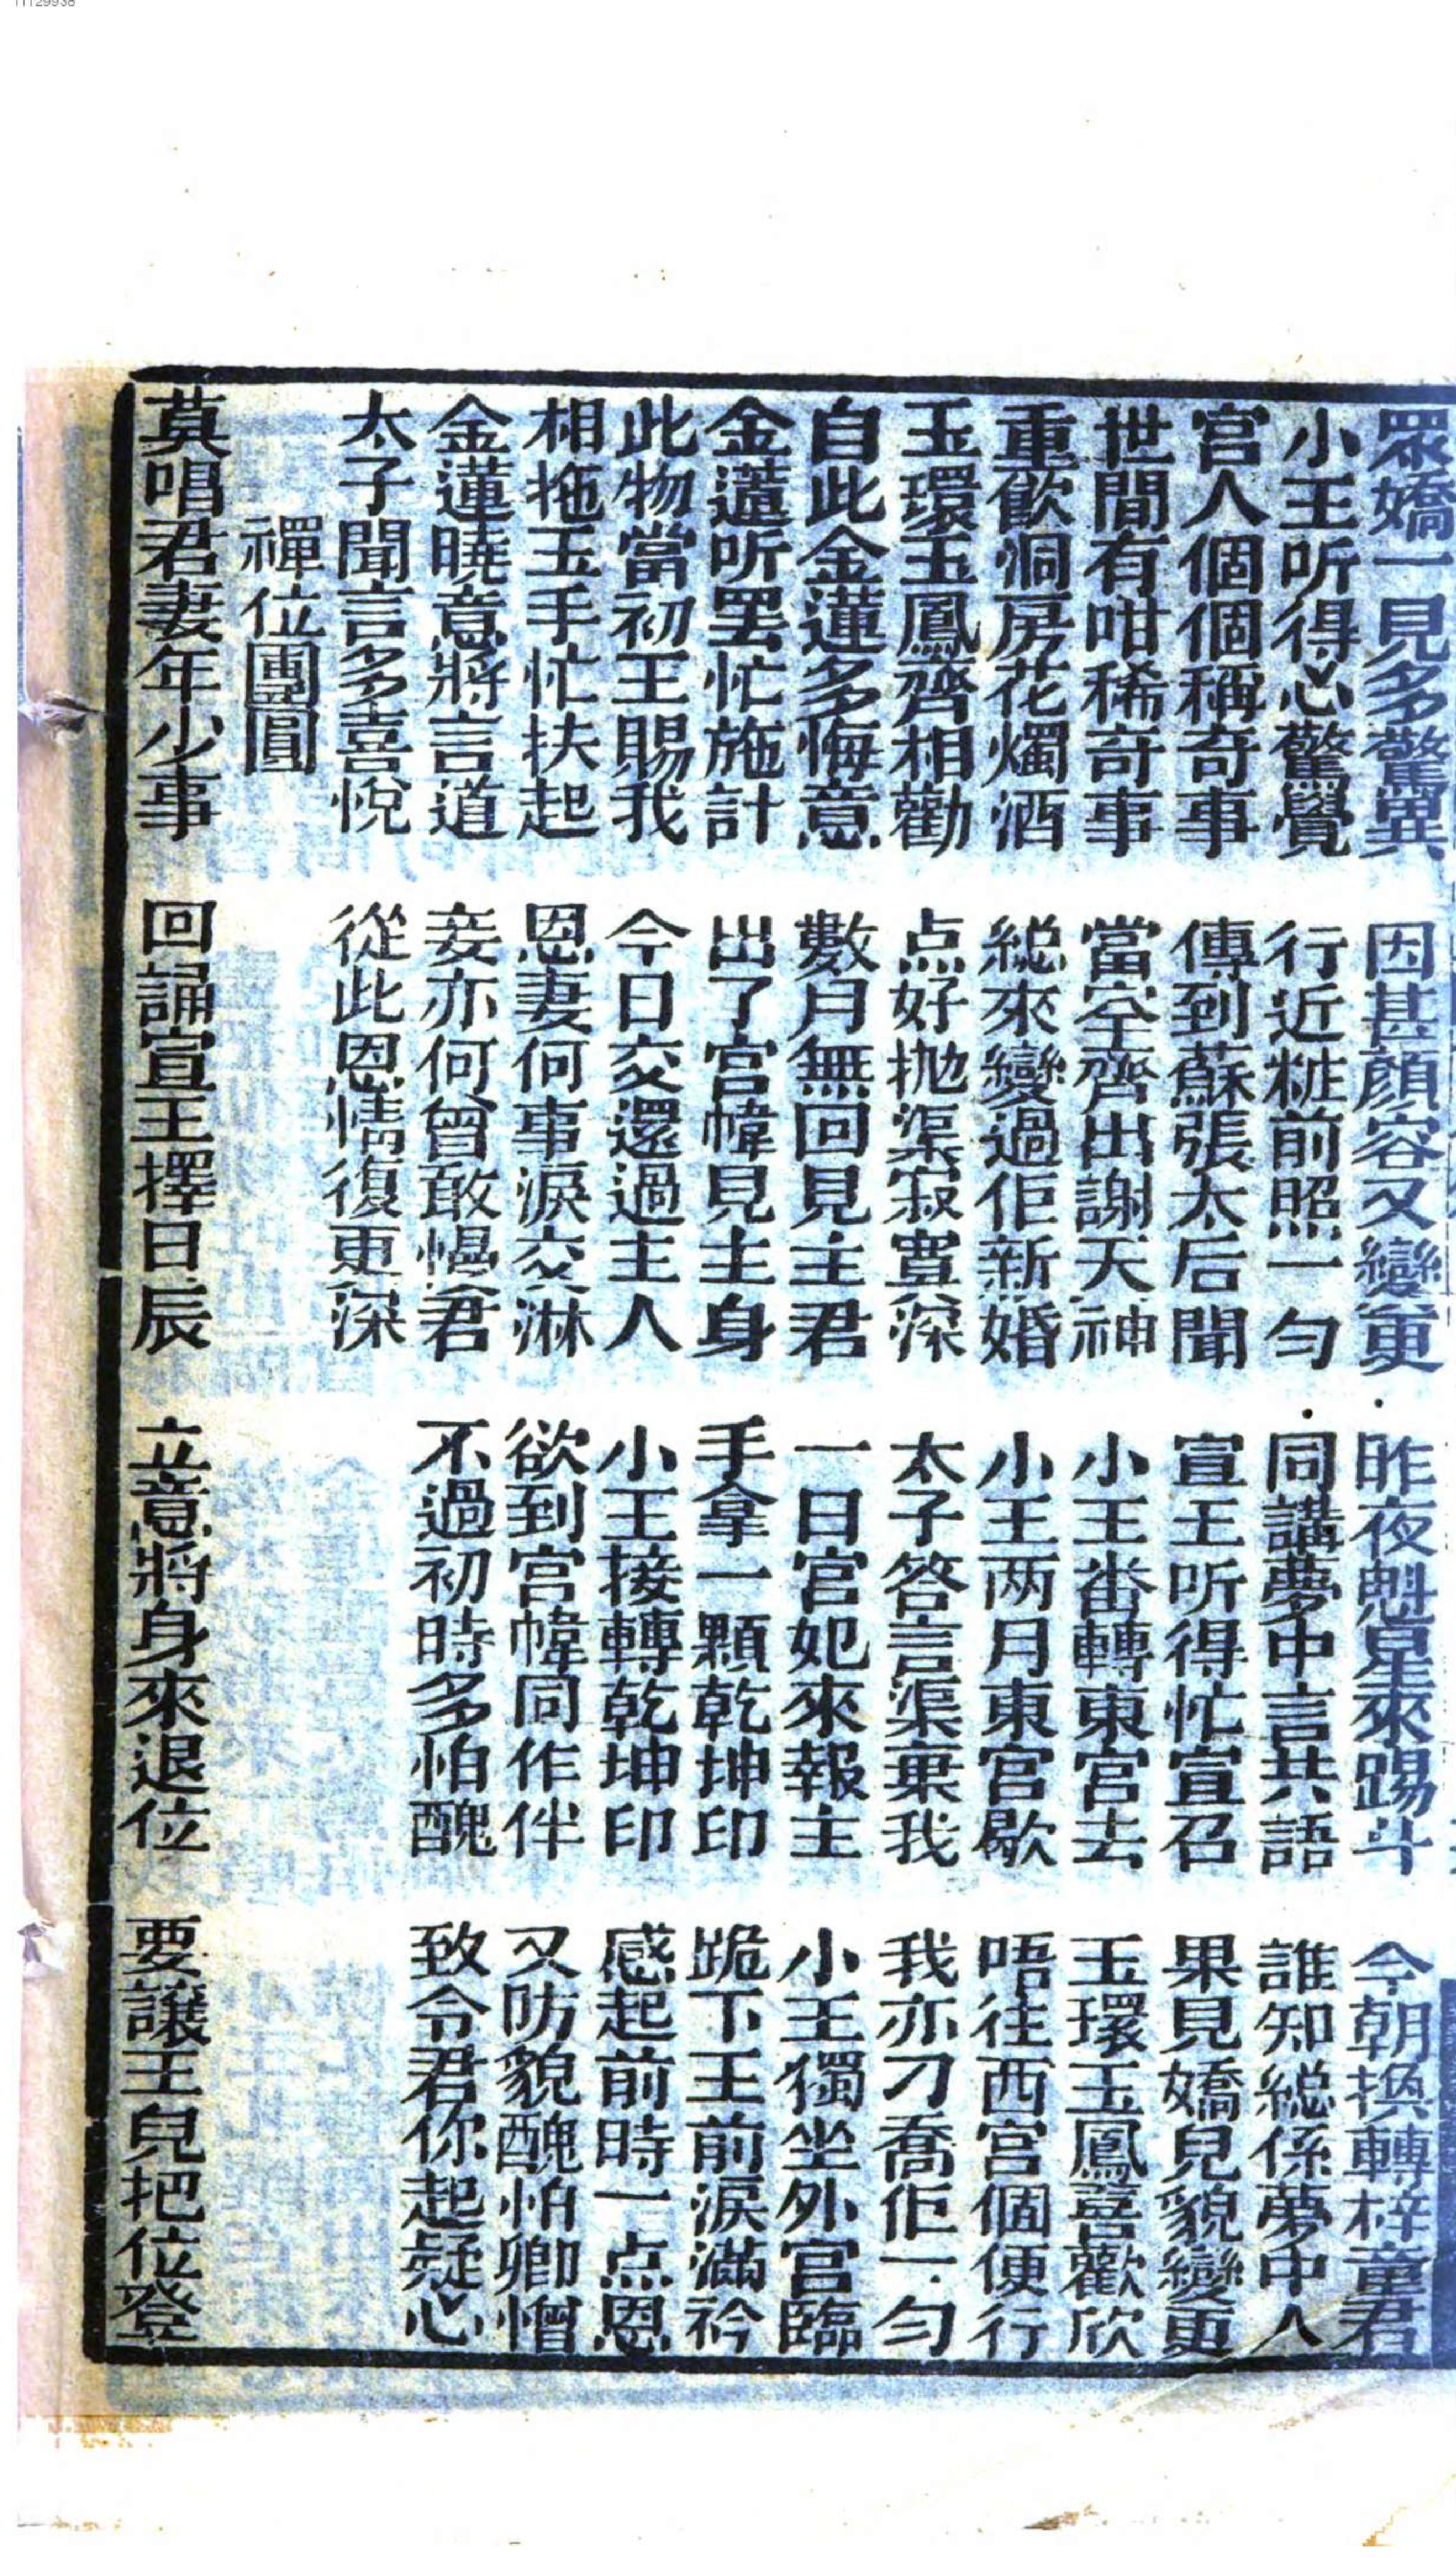 11129938
眾嬌一見多驚異　因甚顏容又變更　昨夜魁星來踢斗　今朝換轉梓童君
小王听得心驚覺　行近粧前照一勻　同講夢中言共語　誰知総係夢中人
宮人個個稱奇事　傳到蘇張太后聞　宣王听得忙宣召　果見嬌兒貌變更
世間有咁稀奇事　當空齊出謝天神　小王畨轉東宮去　玉環玉鳳喜歡欣
重歡洞房花燭酒　総來變過佢新婚　小王两月東宮歇　唔往西宮個便行
玉環玉鳳齊相勸　点好抛渠寂寞深　太子答言渠棄我　我亦刁喬佢一勻
自此金蓮多悔意　數月無回見主君　一日宮妃來報主　小王獨坐外宮臨
金蓮听罢忙施計　出了宮幃見主身　手拿一顆乾坤印　跪下王前淚滿衿
此物當初王賜我　今日交還過主人　小王接轉乾坤印　感起前時一点恩
相拖玉手忙扶起　恩妻何事淚交淋　欲到宮幃同作伴　又防貌醜怕卿憎
金蓮曉意將言道　妾亦何曾敢愠君　不過初時多怕醜　致令君你起疑心
太子聞言多喜悅　從此恩情復更深
禪位團圓
莫唱君妻年少事　回誦宣王擇日辰　立意將身來退位　要讓王兒把位登